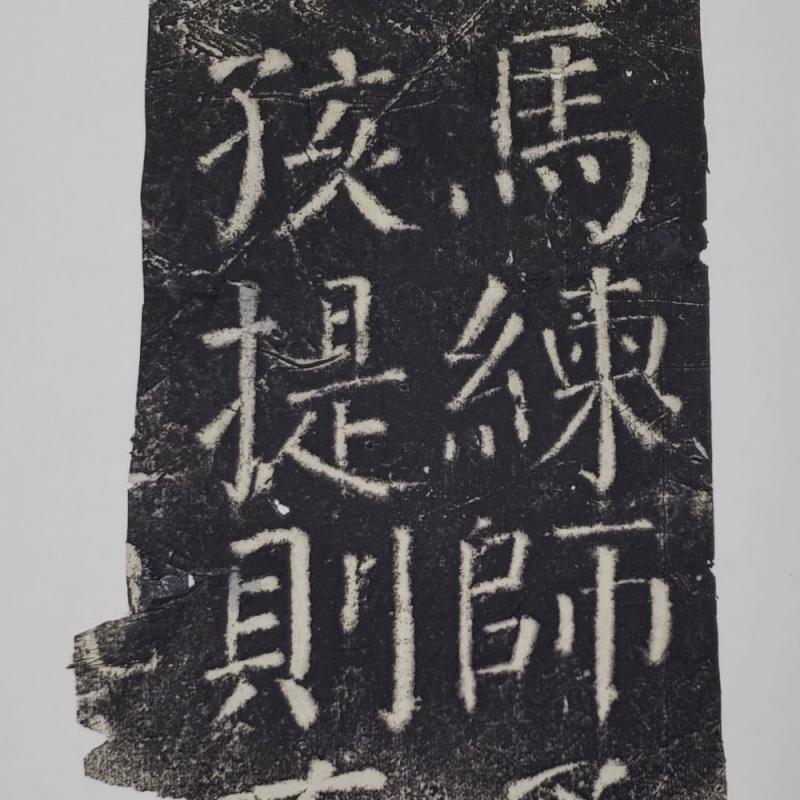 馬練師
孩提則